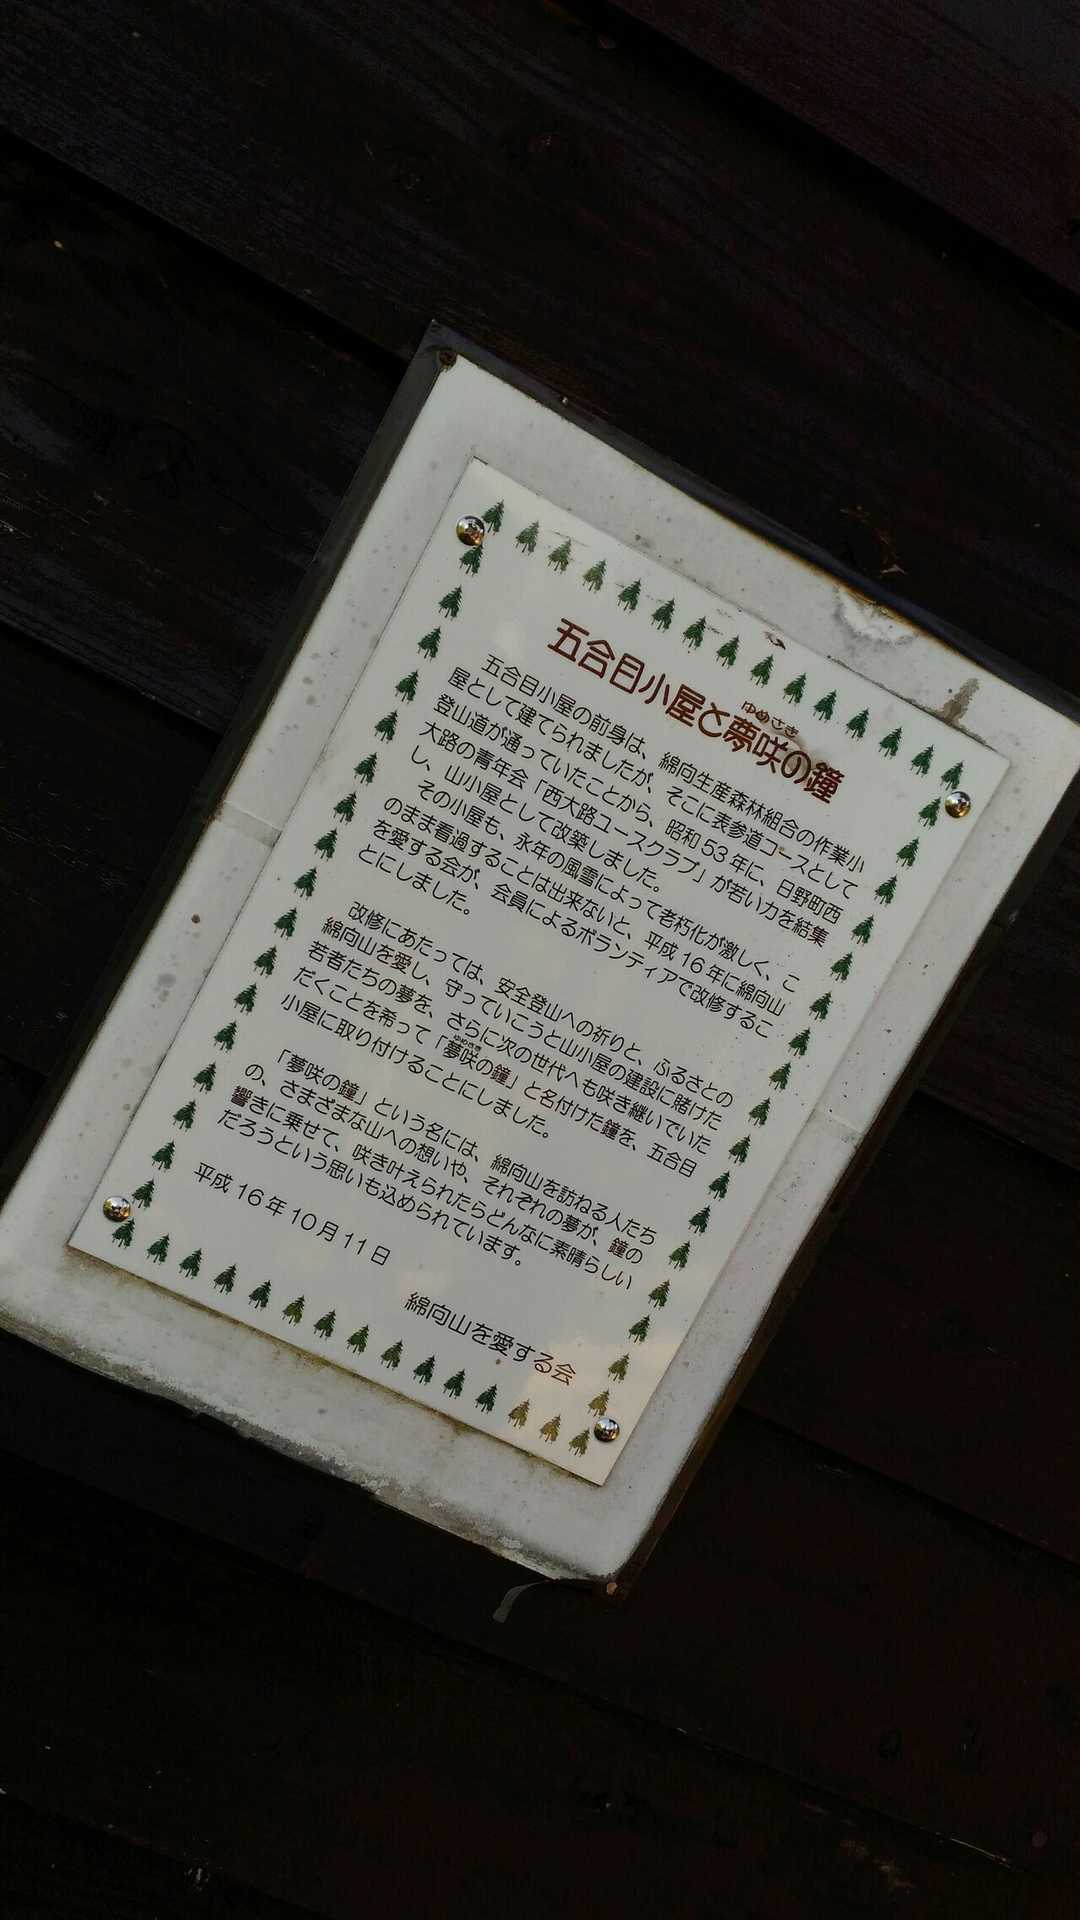 五合目小屋と夢咲の鐘
ゆめさき
五合目小屋の前身は、綿向生産森林組合の作業小
屋として建てられましたが、そこに表参道コースとして
登山道が通っていたことから、昭和53年に、日野町西
大路の青年会「西大路ユースクラブ」が若い力を結集
し、山小屋として改築しました。
その小屋も、永年の風雪によって老朽化が激しく、こ
のまま看過することは出来ないと、平成16年に綿向山
を愛する会が、会員によるボランティアで改修するこ
とにしました。
改修にあたっては、安全登山への祈りと、ふるさとの
綿向山を愛し、守っていこうと山小屋の建設に賭けた
若者たちの夢を、さらに次の世代へも咲き継いでいた
だくことを希って「夢咲の鐘」と名付けた鐘を、五合目
ゆめさき
小屋に取り付けることにしました。
「夢咲の鐘」という名には、綿向山を訪ねる人たち
の、さまざまな山への想いや、それぞれの夢が、鐘の
響きに乗せて、咲き叶えられたらどんなに素晴らしい
だろうという思いも込められています。
平成16年10月11日
綿向山を愛する会